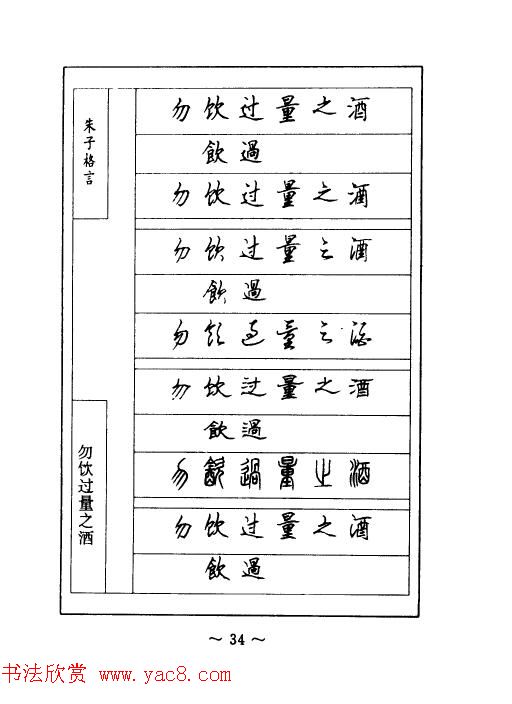 朱子格言
勿饮过量之酒
勿饮过量之酒
飲過
勿饮过量之酒
勿饮过量之酒
飲過
勿饮过量之酒
勿饮过量之酒
飲過
勿飲過量之酒
勿饮过量之酒
飲過
～34～
书法欣赏 www.yac8.com